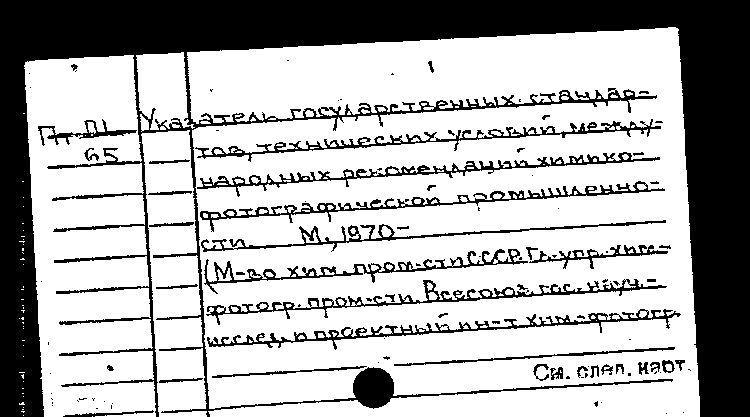 Пт П1
65
Указатель государственных стандар-
тов, технических условий, между-
народных рекомендаций химико-
фотографической промышленно-
сти. М., 1970-
(М-во хим. пром-сти СССР. Гл. упр. хим.-
фотогр. пром-сти. Всесоюз. гос. науч.-
исслед. и проектный ин-т хим.-фотогр.
См. след. карт.